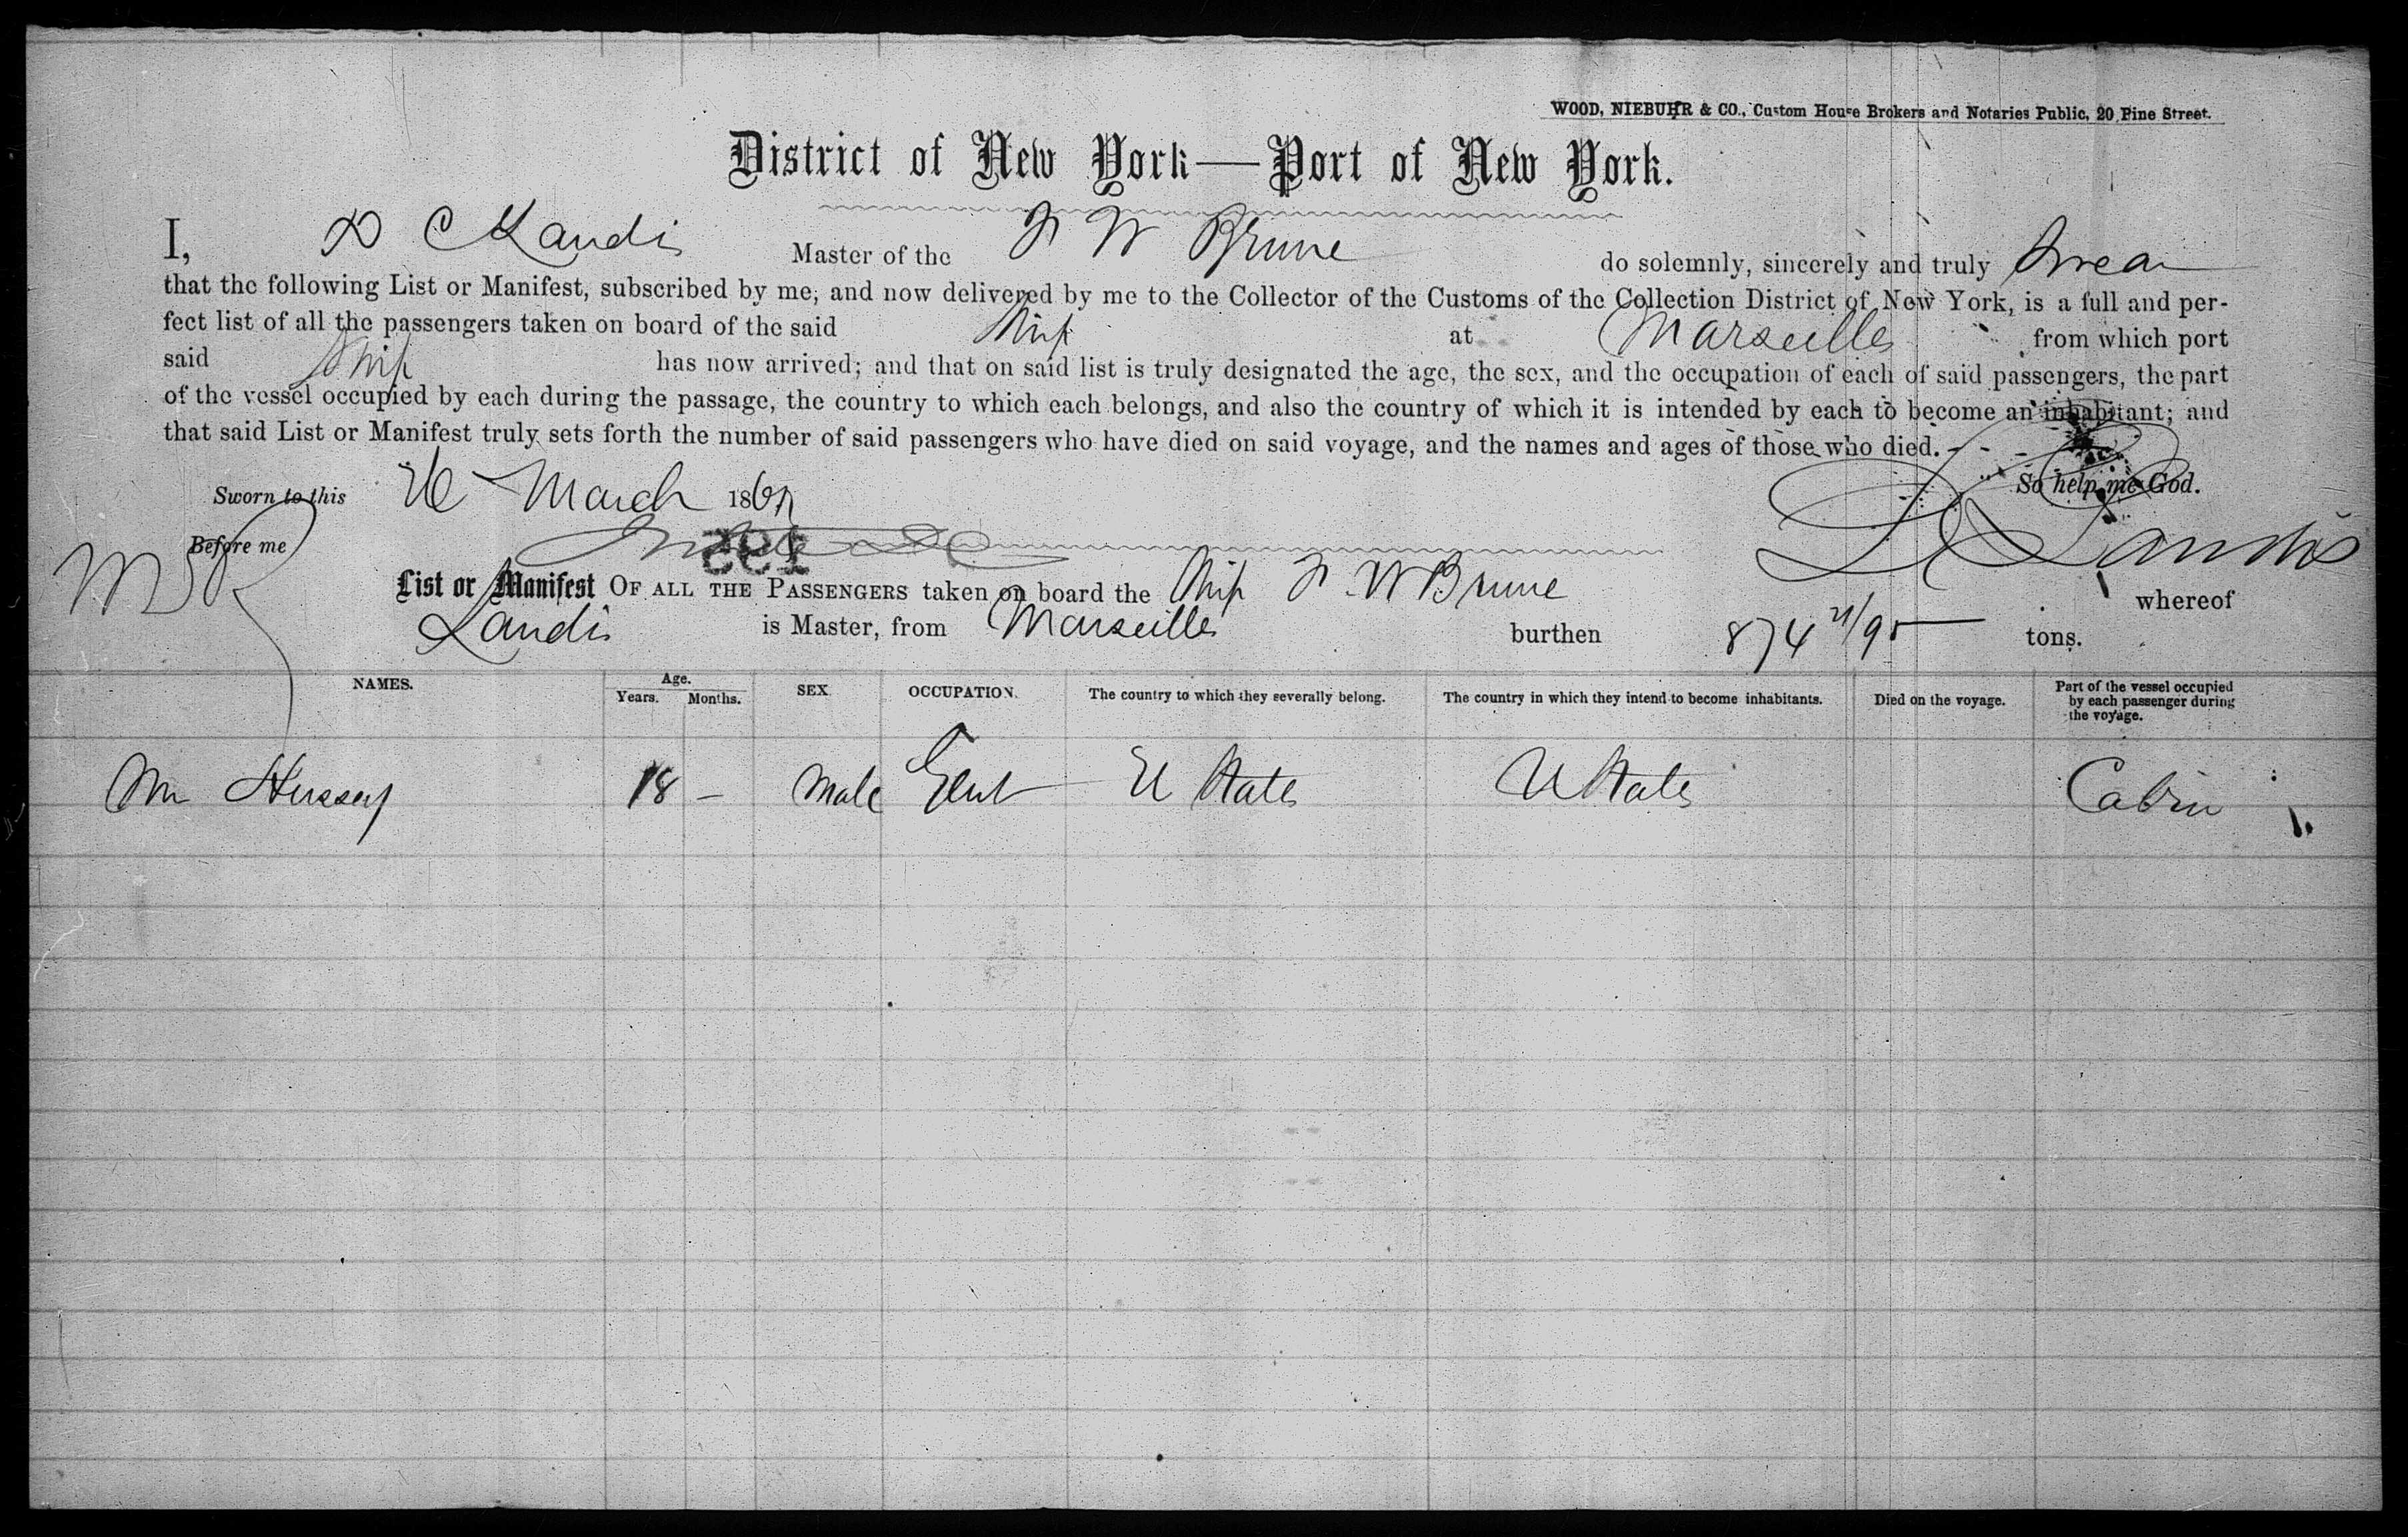 WOOD, NIEBUHR & CO., Custom House Brokers and Notaries Public, 20 Pine Street.
District of New York—Port of New York.
I, D C Landis Master of the F W Brune do solemnly, sincerely and truly swear
that the following List or Manifest, subscribed by me, and now delivered by me to the Collector of the Customs of the Collection District of New York, is a full and per-
fect list of all the passengers taken on board of the said Ship at Marseilles from which port
said Ship has now arrived; and that on said list is truly designated the age, the sex, and the occupation of each of said passengers, the part
of the vessel occupied by each during the passage, the country to which each belongs, and also the country of which it is intended by each to become an inhabitant; and
that said List or Manifest truly sets forth the number of said passengers who have died on said voyage, and the names and ages of those who died.
So help me God.
Sworn to this 26 March 186
Before me
D C Landis
List or Manifest OF ALL THE PASSENGERS taken on board the Ship F W Brune whereof
Landis is Master, from Marseilles burthen 874 21/95 tons.
NAMES. Age. Years. Months. SEX. OCCUPATION. The country to which they severally belong. The country in which they intend to become inhabitants. Died on the voyage. Part of the vessel occupied by each passenger during the voyage.
Mr Hussey 18 – Male Gent U States U States Cabin